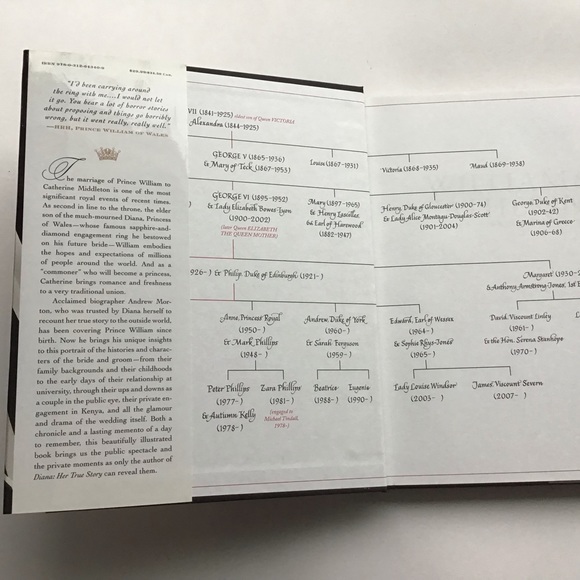 "I'd been carrying around
the ring with me.... I would not let
it go. You hear a lot of horror stories
about proposing and things go horribly
wrong, but it went really, really well."
—HRH, PRINCE WILLIAM OF WALES
The marriage of Prince William to
Catherine Middleton is one of the most
significant royal events of recent times.
As second in line to the throne, the elder
son of the much-mourned Diana, Princess
of Wales—whose famous sapphire-and-
diamond engagement ring he bestowed
on his future bride—William embodies
the hopes and expectations of millions
of people around the world. And as a
"commoner" who will become a princess,
Catherine brings romance and freshness
to a very traditional union.
Acclaimed biographer Andrew Mor-
ton, who was trusted by Diana herself to
recount her true story to the outside world,
has been covering Prince William since
birth. Now he brings his unique insights
to this portrait of the histories and charac-
ters of the bride and groom—from their
family backgrounds and their childhoods
to the early days of their relationship at
university, through their ups and downs as
a couple in the public eye, their private en-
gagement in Kenya, and all the glamour
and drama of the wedding itself. Both a
chronicle and a lasting memento of a day
to remember, this beautifully illustrated
book brings us the public spectacle and
the private moments as only the author of
Diana: Her True Story can reveal them.
VII (1841-1925) eldest son of Queen VICTORIA
Alexandra (1844-1925)
GEORGE V (1865-1936)
& Mary of Teck (1867-1953)
Louise (1867-1931)
Victoria (1868-1935)
Maud (1869-1938)
)
GEORGE VI (1895-1952)
& Lady Elizabeth Bowes-Lyon
(1900-2002)
(later Queen ELIZABETH
THE QUEEN MOTHER)
Mary (1897-1965)
& Henry Lascelles,
6th Earl of Harewood
(1882-1947)
Henry, Duke of Gloucester (1900-74)
& Lady Alice Montagu-Douglas-Scott
(1901-2004)
George, Duke of Kent
(1902-42)
& Marina of Greece
(1906-68)
926- ) & Philip, Duke of Edinburgh (1921- )
Margaret (1930-2
& Anthony Armstrong-Jones, 1st E
Anne, Princess Royal
(1950- )
& Mark Phillips
(1948- )
Andrew, Duke of York
(1960- )
& Sarah Ferguson
(1959- )
Edward, Earl of Wessex
(1964- )
& Sophie Rhys-Jones
(1965- )
David, Viscount Linley
(1961- )
& the Hon. Serena Stanhope
(1970- )
Peter Phillips
(1977- )
& Autumn Kelly
(1978- )
Zara Phillips
(1981- )
(engaged to
Michael Tindall,
1978-)
Beatrice
(1988- )
Eugenie
(1990- )
Lady Louise Windsor
(2003- )
James, Viscount Severn
(2007- )